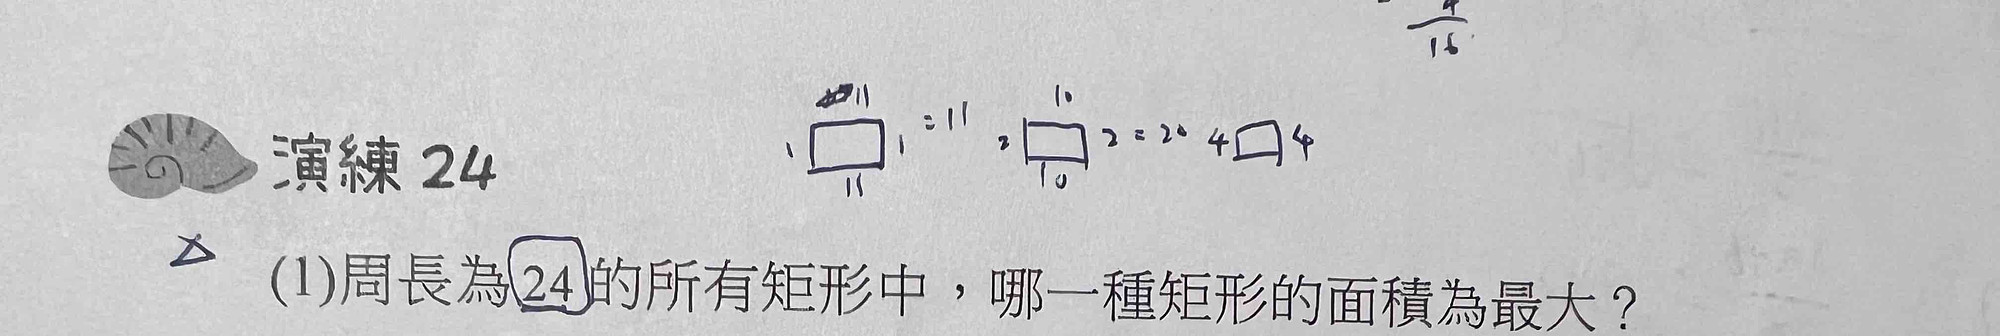 4
16
11
1 1 = 11
11
10
2 2 = 20
10
4 4
演練 24
(1)周長為24的所有矩形中，哪一種矩形的面積為最大？